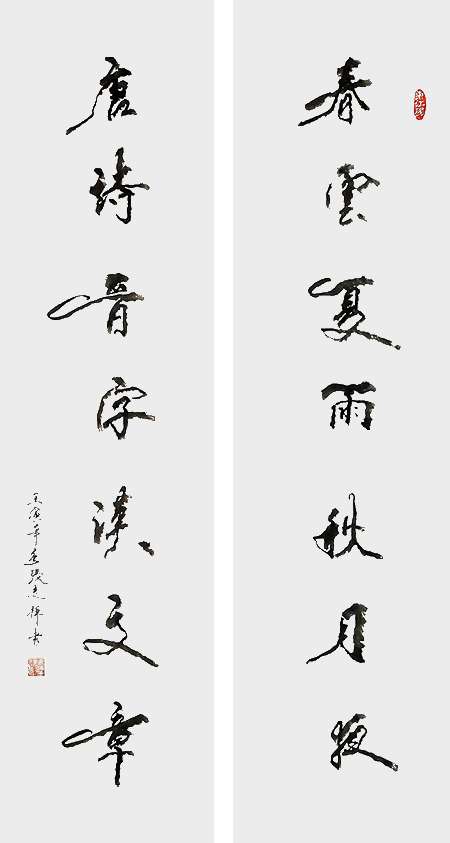 春雲夏雨秋月夜
唐詩晉字漢文章
壬寅年張志書